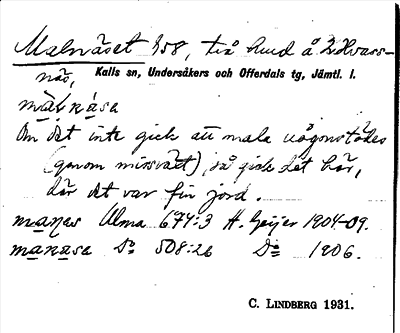 Malnäset 158, två hus å 2 Hvass-
näs, Kalls sn, Undersåkers och Offerdals tg, Jämtl. l.
màlnása
Om det inte gick att mala någonstädes
(genom missväxt), så gick det här,
där det var fin jord.
Ulma 677:3 H. Geijer 1904-09.
Do 508:26 Do 1906.
C. LINDBERG 1931.